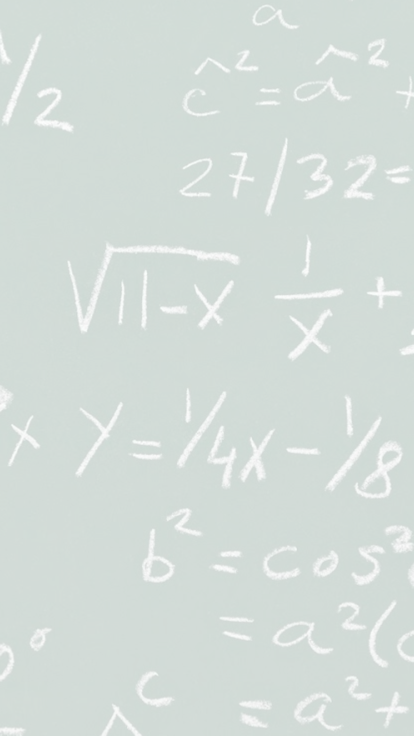 a
1/2
ĉ² = â² +
27/32=
√11-x 1/x +
x y = 1/4x - 1/8
b² = cos²
= a²(
0°
c = a² +